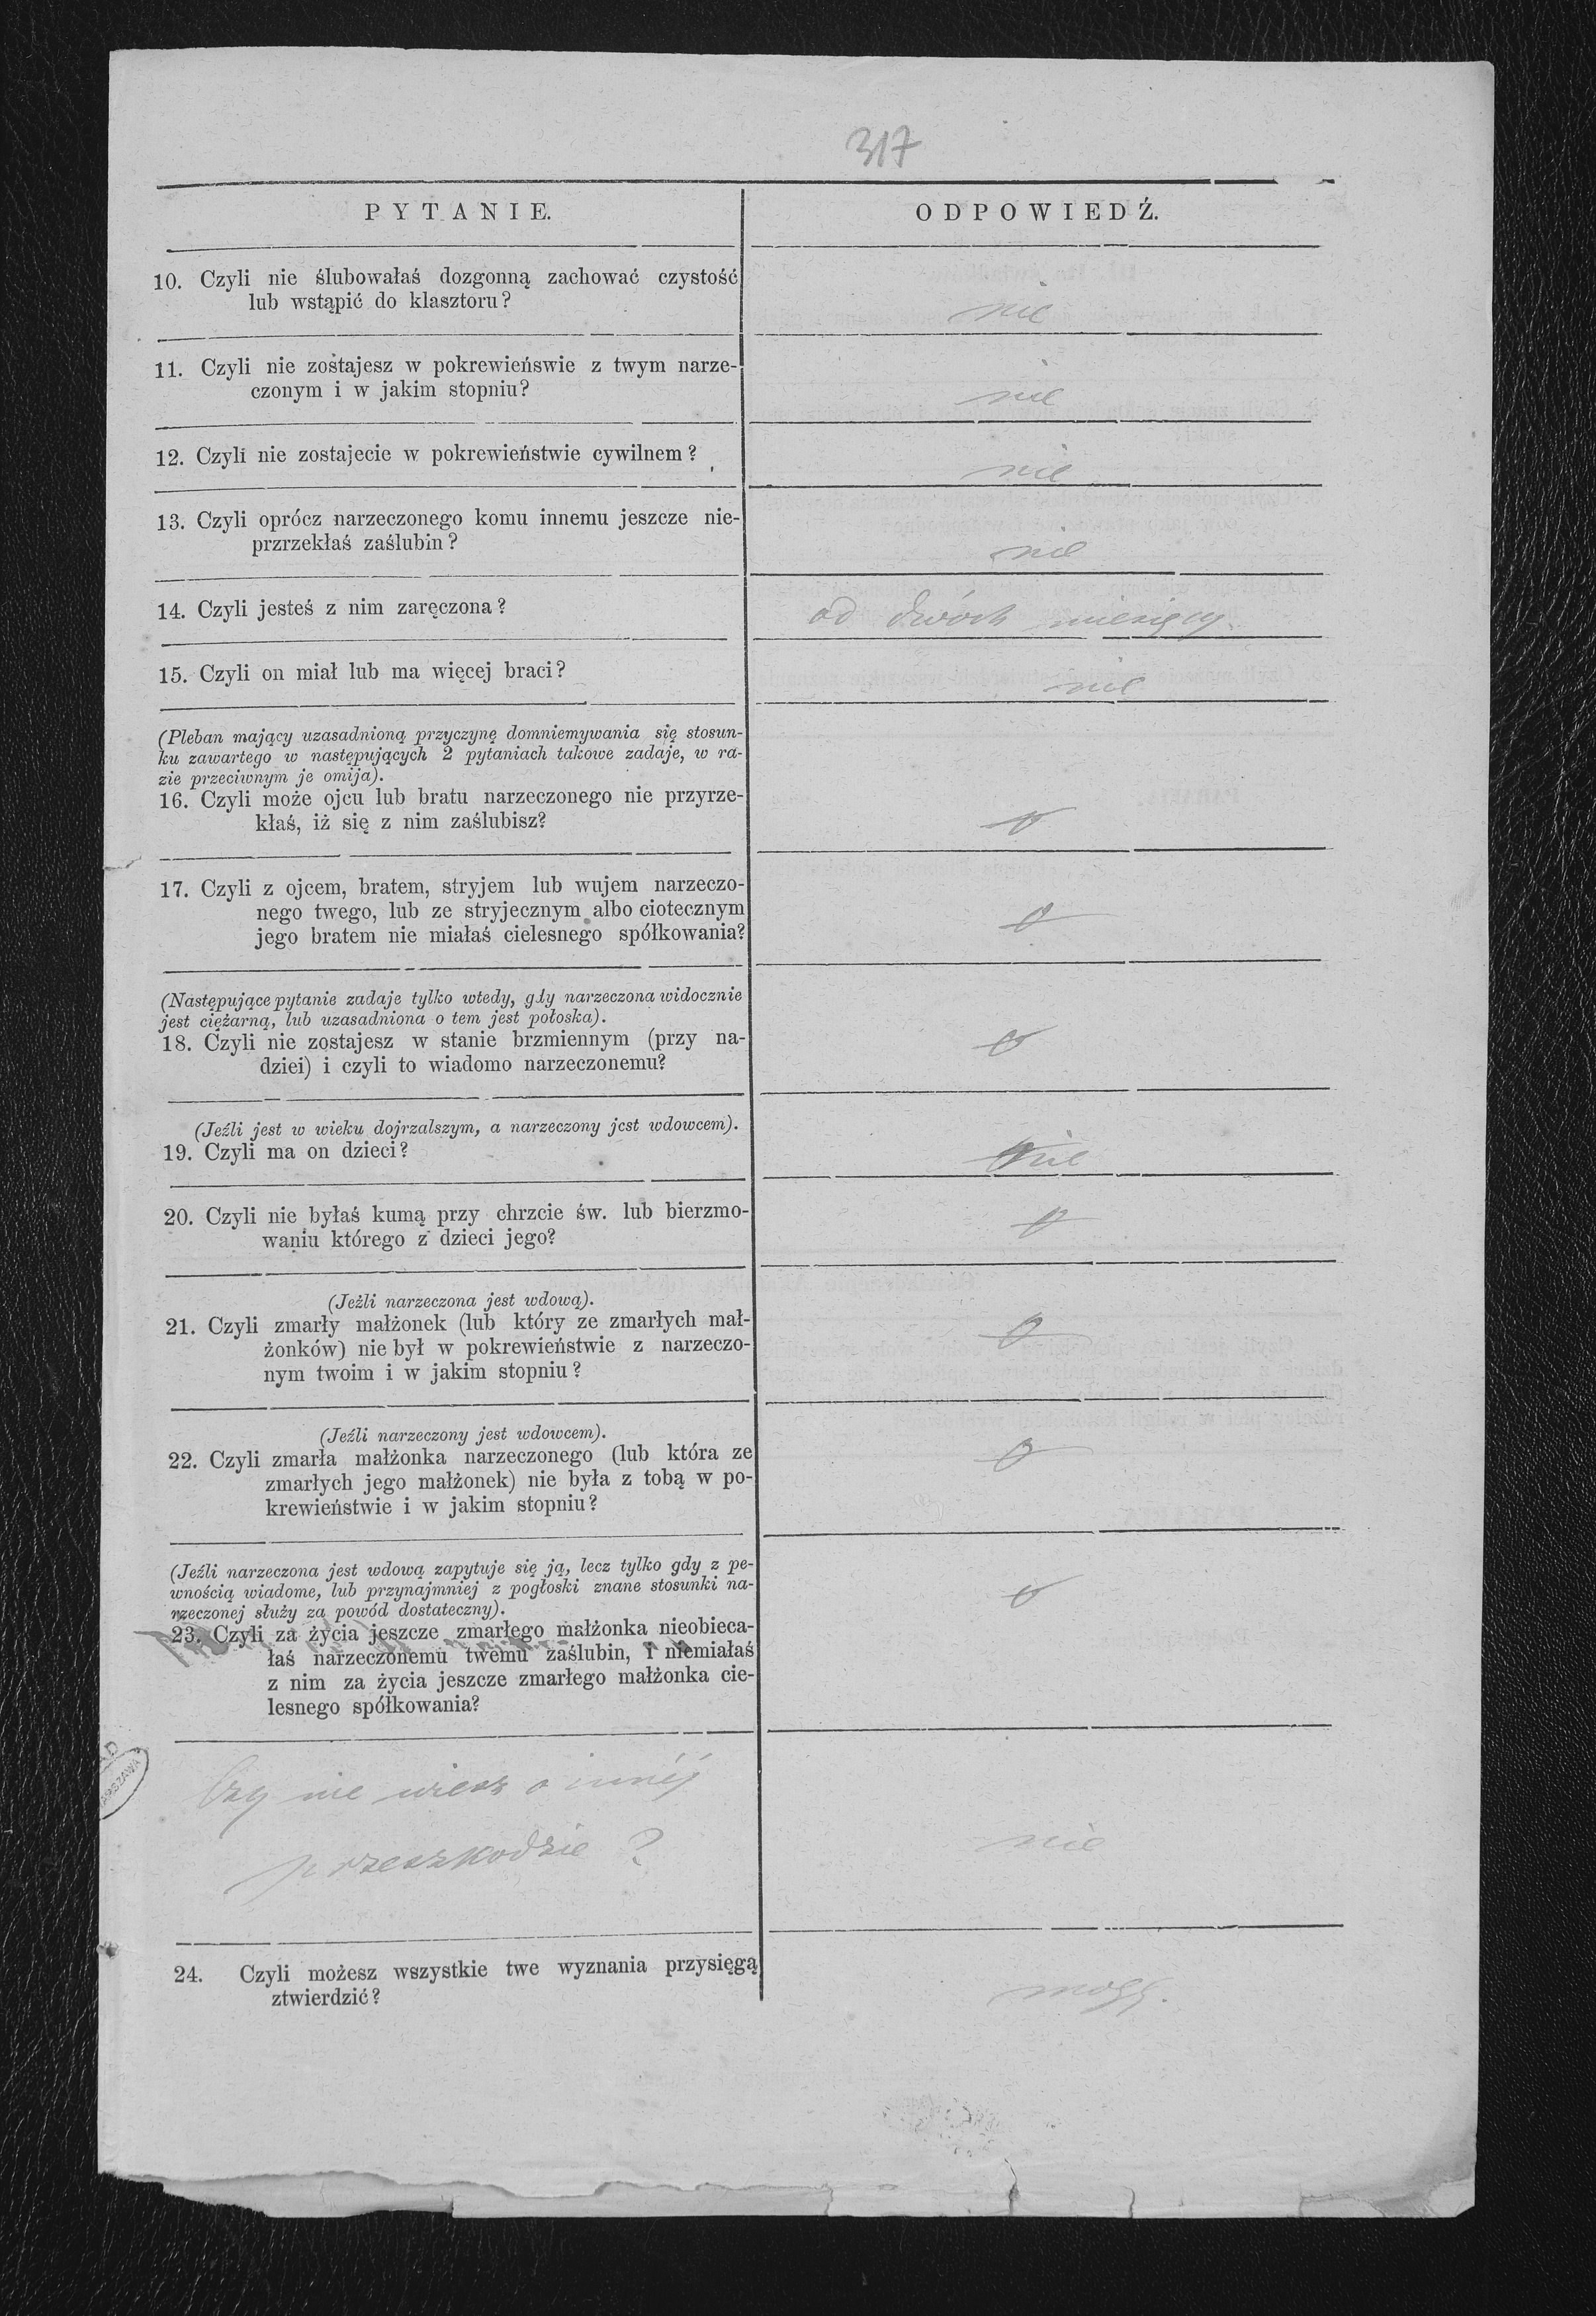 317
PYTANIE.
ODPOWIEDŹ.
10. Czyli nie ślubowałaś dozgonną zachować czystość
lub wstąpić do klasztoru?
nie
11. Czyli nie zostajesz w pokrewieńswie z twym narze-
czonym i w jakim stopniu?
nie
12. Czyli nie zostajecie w pokrewieństwie cywilnem?
nie
13. Czyli oprócz narzeczonego komu innemu jeszcze nie-
przrzekłaś zaślubin?
nie
14. Czyli jesteś z nim zaręczona?
od dwóch miesięcy.
15. Czyli on miał lub ma więcej braci?
nie
(Pleban mający uzasadnioną przyczynę domniemywania się stosun-
ku zawartego w następujących 2 pytaniach takowe zadaje, w ra-
zie przeciwnym je omija).
16. Czyli może ojcu lub bratu narzeczonego nie przyrze-
kłaś, iż się z nim zaślubisz?
17. Czyli z ojcem, bratem, stryjem lub wujem narzeczo-
nego twego, lub ze stryjecznym albo ciotecznym
jego bratem nie miałaś cielesnego spółkowania?
(Następujące pytanie zadaje tylko wtedy, gdy narzeczona widocznie
jest ciężarną, lub uzasadniona o tem jest połoska).
18. Czyli nie zostajesz w stanie brzmiennym (przy na-
dziei) i czyli to wiadomo narzeczonemu?
(Jeźli jest w wieku dojrzalszym, a narzeczony jest wdowcem).
19. Czyli ma on dzieci?
nie
20. Czyli nie byłaś kumą przy chrzcie św. lub bierzmo-
waniu którego z dzieci jego?
(Jeżli narzeczona jest wdową).
21. Czyli zmarły małżonek (lub który ze zmarłych mał-
żonków) nie był w pokrewieństwie z narzeczo-
nym twoim i w jakim stopniu?
(Jeźli narzeczony jest wdowcem).
22. Czyli zmarła małżonka narzeczonego (lub która ze
zmarłych jego małżonek) nie była z tobą w po-
krewieństwie i w jakim stopniu?
(Jeźli narzeczona jest wdową zapytuje się ją, lecz tylko gdy z pe-
wnością wiadome, lub przynajmniej z pogłoski znane stosunki na-
rzeczonej służy za powód dostateczny).
23. Czyli za życia jeszcze zmarłego małżonka nieobieca-
łaś narzeczonemu twemu zaślubin, i niemiałaś
z nim za życia jeszcze zmarłego małżonka cie-
lesnego spółkowania?
Czy nie wiesz o innéj
przeszkodzie?
nie
24. Czyli możesz wszystkie twe wyznania przysięgą
ztwierdzić?
mogę.